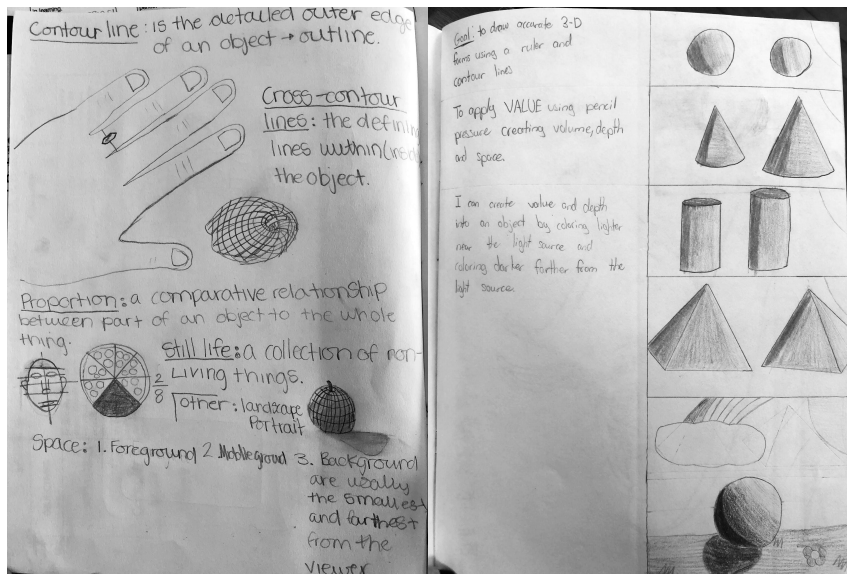 Contour line: is the detailed outer edge
of an object → outline.
Cross-contour
lines: the defining
lines within(inside
the object.
Proportion: a comparative relationship
between part of an object to the whole
thing.
Still life: a collection of non-
Living things.
2
8
other: landscape
Portrait
Space: 1. Foreground 2 Middleground 3. Background
are usally
the smallest
and farthest
from the
viewer
Goal: to draw accurate 3-D
forms using a ruler and
contour lines
To apply VALUE using pencil
pressure creating volume, depth
and space.
I can create value and depth
into an object by coloring lighter
near the light source and
coloring darker farther from the
light source.